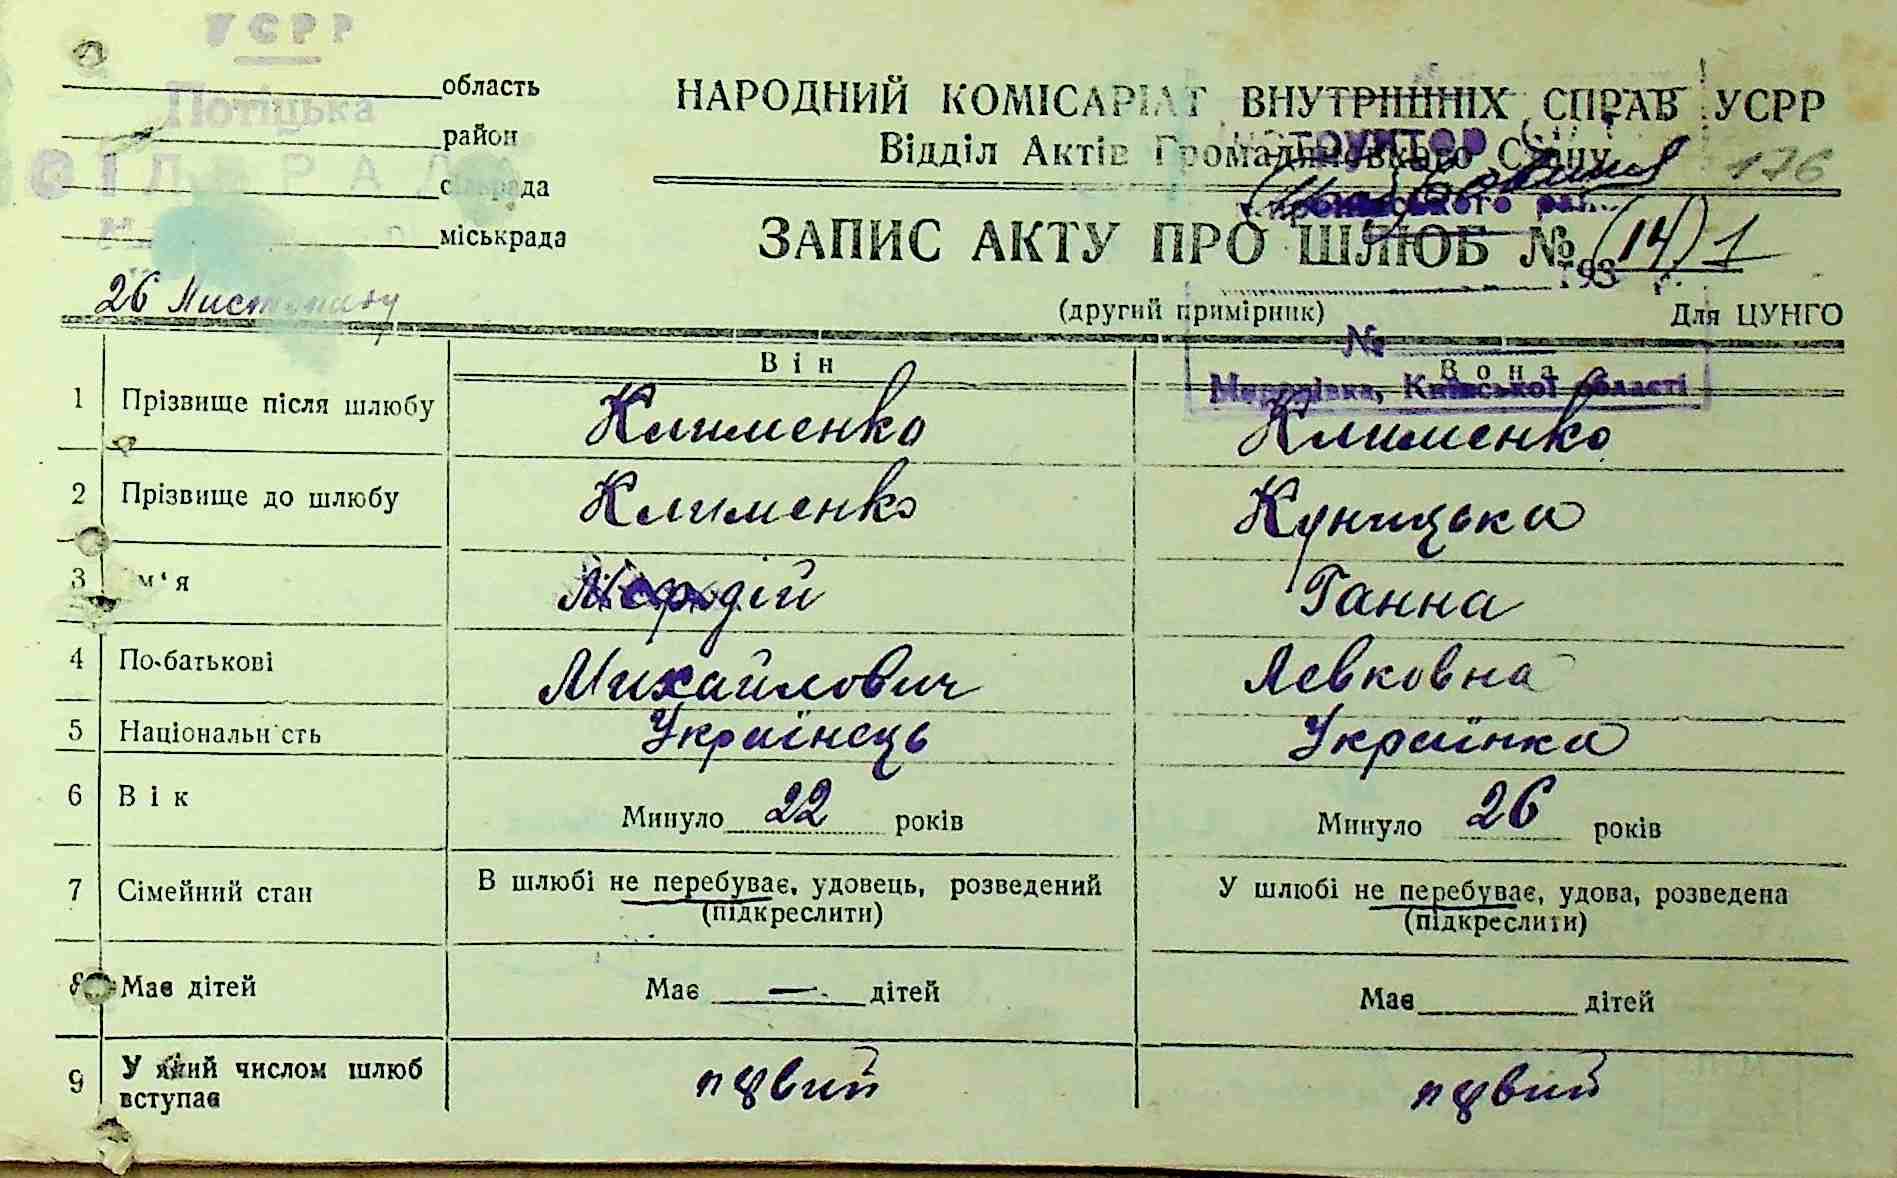 УСРР
Потіцька
область
НАРОДНИЙ КОМІСАРІАТ ВНУТРІШНІХ СПРАВ УСРР
район
Відділ Актів Громадянського Стану
176
СІЛЬРАДА
сільрада
міськрада
ЗАПИС АКТУ ПРО ШЛЮБ № (14) 1
193 р.
26 Листопаду
(другий примірник)
Для ЦУНГО
№
Миронівка, Київської області
Він
Вона
1 Прізвище після шлюбу Клименко Клименко
2 Прізвище до шлюбу Клименко Куницька
3 Ім'я Ганна
4 По-батькові Михайлович Левковна
5 Національність Українець Українка
6 Вік Минуло 22 років Минуло 26 років
7 Сімейний стан В шлюбі не перебуває, удовець, розведений У шлюбі не перебуває, удова, розведена
(підкреслити) (підкреслити)
8 Має дітей Має — дітей Має дітей
9 У який числом шлюб
вступає